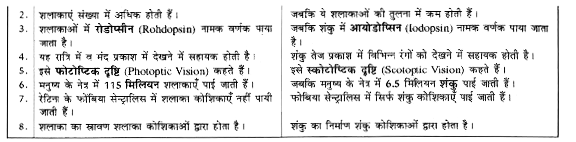 2. शलाकाएं संख्या में अधिक होती हैं। जबकि ये शलाकाओं की तुलना में कम होती हैं।
3. शलाकाओं में रोडोप्सीन (Rohdopsin) नामक वर्णक पाया जबकि शंकु में आयोडोप्सिन (Iodopsin) नामक वर्णक पाया जाता
जाता है। है।
4. यह रात्रि में व मंद प्रकाश में देखने में सहायक होती है। शंकु तेज प्रकाश में विभिन्न रंगों को देखने में सहायक होती है।
5. इसे फोटोप्टिक दृष्टि (Photoptic Vision) कहते हैं। इसे स्कोटोप्टिक दृष्टि (Scotoptic Vision) कहते हैं।
6. मनुष्य के नेत्र में 115 मिलियन शलाकाएँ पाई जाती हैं। जबकि मनुष्य के नेत्र में 6.5 मिलियन शंकु पाई जाती हैं।
7. रेटिना के फोबिया सेन्ट्रालिस में शलाका कोशिकाएँ नहीं पायी फोबिया सेन्ट्रालिस में सिर्फ शंकु कोशिकाएँ पाई जाती हैं।
जाती हैं।
8. शलाका का स्रावण शलाका कोशिकाओं द्वारा होता है। शंकु का निर्माण शंकु कोशिकाओं द्वारा होता है।